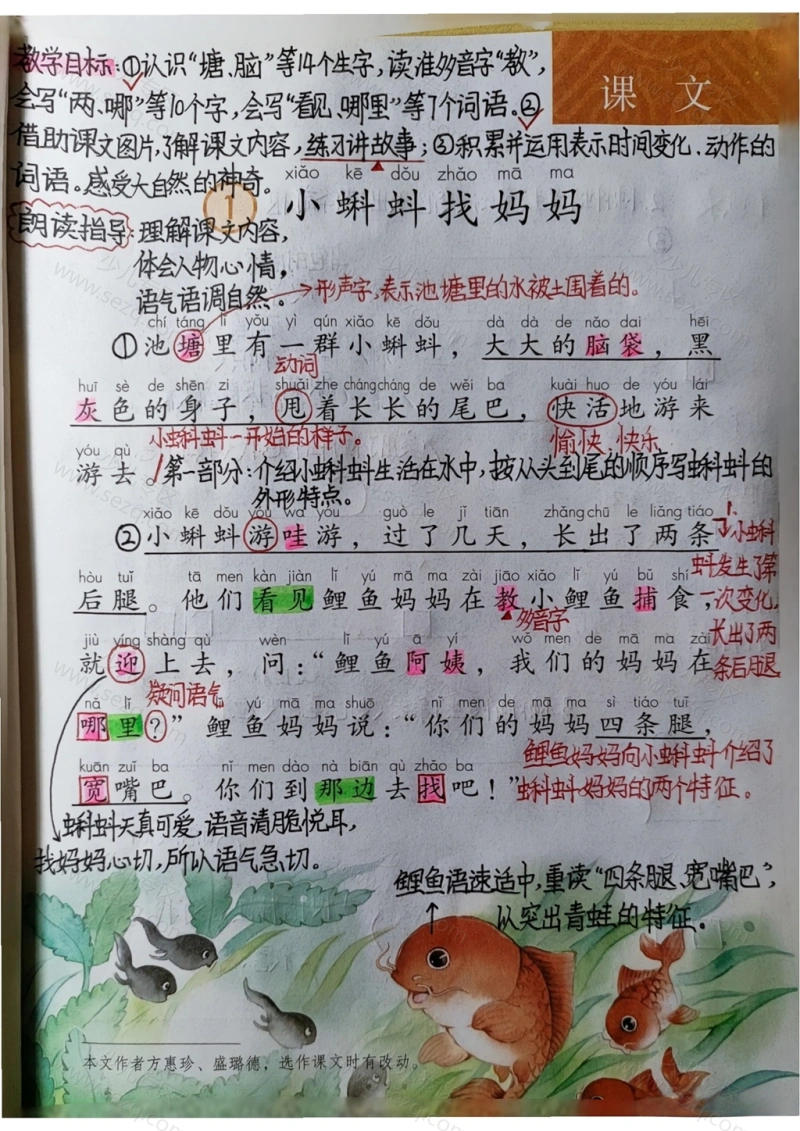 教学目标:①认识“塘、脑”等14个生字,读准多音字“教”,
会写“两、哪”等10个字,会写“看见、哪里”等7个词语。②
借助课文图片,了解课文内容,练习讲故事;③积累并运用表示时间变化、动作的
词语。感受大自然的神奇。
课文
xiǎo kē dǒu zhǎo mā ma
1 小蝌蚪找妈妈
朗读指导:理解课文内容,
体会人物心情,
语气语调自然。
形声字,表示池塘里的水被土围着的。
chí táng lǐ yǒu yì qún xiǎo kē dǒu dà dà de nǎo dai hēi
①池塘里有一群小蝌蚪,大大的脑袋,黑
动词
huī sè de shēn zi shuǎi zhe cháng cháng de wěi ba kuài huo de yóu lái
灰色的身子,甩着长长的尾巴,快活地游来
小蝌蚪一开始的样子。
愉快、快乐
yóu qù
游去。
第一部分:介绍小蝌蚪生活在水中,按从头到尾的顺序写蝌蚪的
外形特点。
xiǎo kē dǒu yóu wa yóu guò le jǐ tiān zhǎng chū le liǎng tiáo
②小蝌蚪游哇游,过了几天,长出了两条
小蝌蚪发生了第一次变化,长出了两条后腿
hòu tuǐ tā men kàn jiàn lǐ yú mā ma zài jiāo xiǎo lǐ yú bǔ shí
后腿。他们看见鲤鱼妈妈在教小鲤鱼捕食,
多音字
jiù yíng shàng qù wèn lǐ yú ā yí wǒ men de mā ma zài
就迎上去,问:“鲤鱼阿姨,我们的妈妈在
疑问语气
nǎ lǐ lǐ yú mā ma shuō nǐ men de mā ma sì tiáo tuǐ
哪里?”鲤鱼妈妈说:“你们的妈妈四条腿,
鲤鱼妈妈向小蝌蚪介绍了
蝌蚪妈妈的两个特征。
kuān zuǐ ba nǐ men dào nà biān qù zhǎo ba
宽嘴巴。你们到那边去找吧!”
蝌蚪天真可爱,语音清脆悦耳,
找妈妈心切,所以语气急切。
鲤鱼语速适中,重读“四条腿、宽嘴巴”,
以突出青蛙的特征。
本文作者方惠珍、盛璐德,选作课文时有改动。